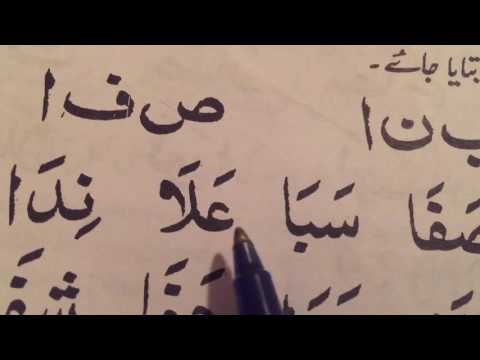 بتایا جائے۔
ب ن ا ص ف ا
صَفَا سَبَا عَلَا نِدَا